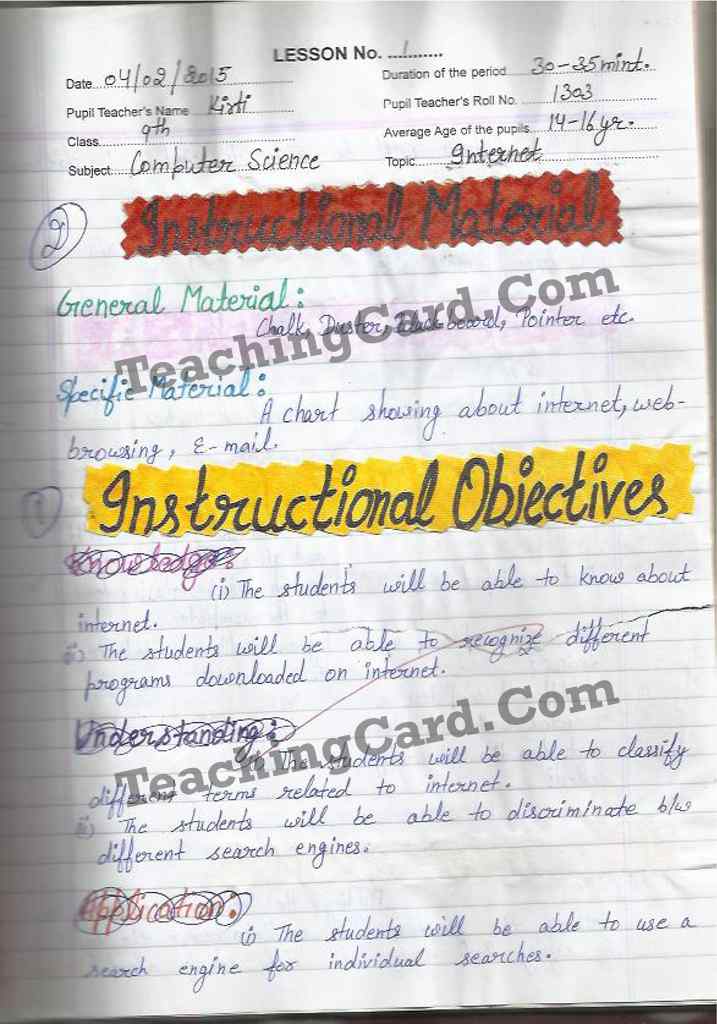 LESSON No. 1
Date 04/02/2015 Duration of the period 30-35mint.
Pupil Teacher's Name Kirti Pupil Teacher's Roll No. 1303
Class 9th Average Age of the pupils 14-16yr.
Subject Computer Science Topic Internet
2 Instructional Material
General Material:
Chalk, Duster, board, Pointer etc.
TeachingCard.Com
Specific Material:
A chart showing about internet, web-
browsing, E-mail.
1 Instructional Objectives
Knowledge:
(i) The students will be able to know about
internet.
ii) The students will be able to recognize different
programs downloaded on internet.
Understanding:
TeachingCard.Com
i) The students will be able to classify
different terms related to internet.
ii) The students will be able to discriminate b/w
different search engines.
Application:
i) The students will be able to use a
search engine for individual searches.